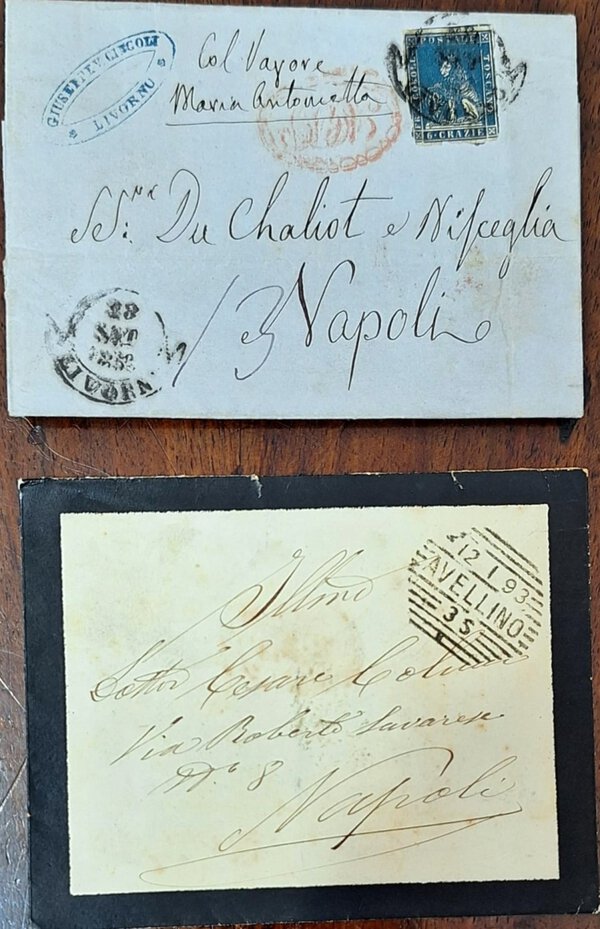 GIUSEPPE V CINGOLI
LIVORNO
Col Vapore
Maria Antonietta
FRANCOBOLLO POSTALE TOSCANO
6 CRAZIE
SS.ri Du Chaliot e Nisceglia
Napoli
23
SET
LIVORNO
12 1 93
AVELLINO
3 S
Illmo
Cesare
Via Roberto Savarese
No 8
Napoli